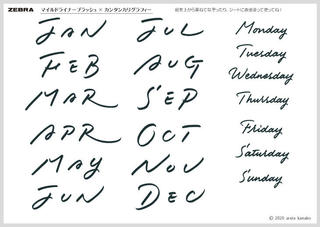 ZEBRA マイルドライナーブラッシュ × カンタンカリグラフィー
紙を上から重ねてなぞったり、シートに直接塗って使ってね!
JAN
FEB
MAR
APR
MAY
JUN
JUL
AUG
SEP
OCT
NOV
DEC
Monday
Tuesday
Wednesday
Thursday
Friday
Saturday
Sunday
© 2020